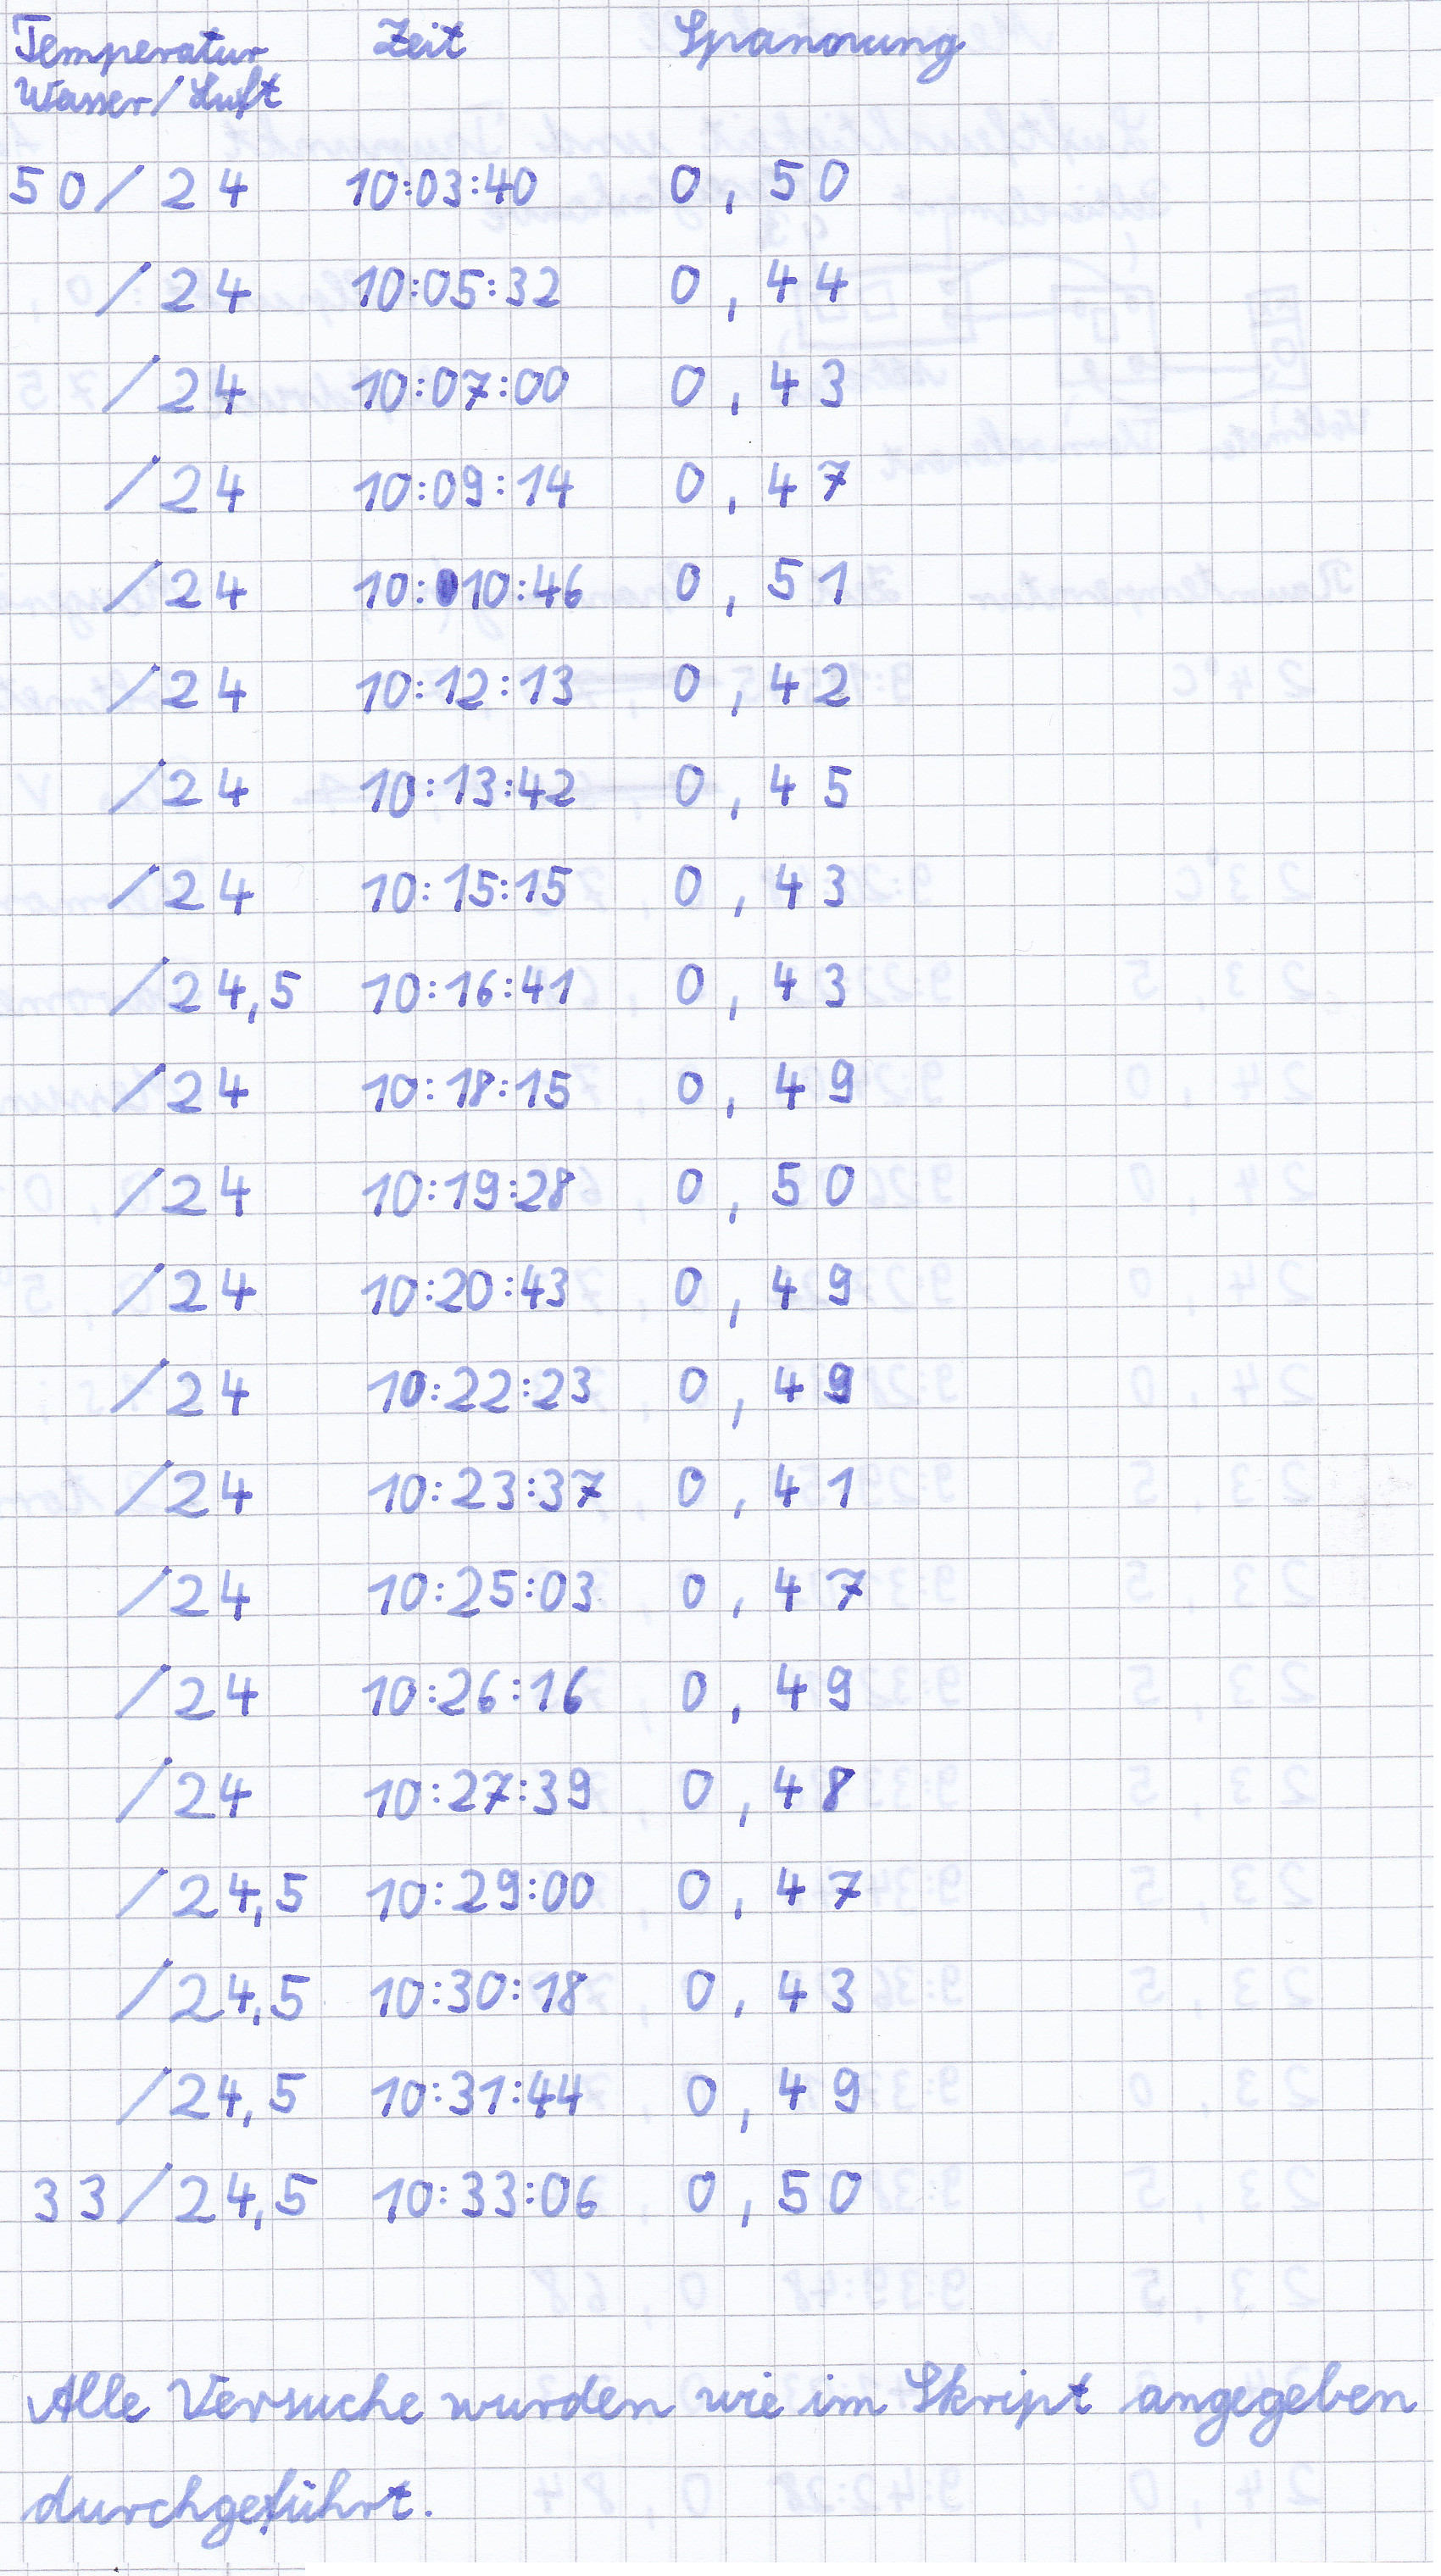 Temperatur Zeit Spannung
Wasser/Luft
50/24 10:03:40 0,50
/24 10:05:32 0,44
/24 10:07:00 0,43
/24 10:09:14 0,47
/24 10:10:46 0,51
/24 10:12:13 0,42
/24 10:13:42 0,45
/24 10:15:15 0,43
/24,5 10:16:41 0,43
/24 10:18:15 0,49
/24 10:19:28 0,50
/24 10:20:43 0,49
/24 10:22:23 0,49
/24 10:23:37 0,41
/24 10:25:03 0,47
/24 10:26:16 0,49
/24 10:27:39 0,48
/24,5 10:29:00 0,47
/24,5 10:30:18 0,43
/24,5 10:31:44 0,49
33/24,5 10:33:06 0,50
Alle Versuche wurden wie im Skript angegeben
durchgeführt.